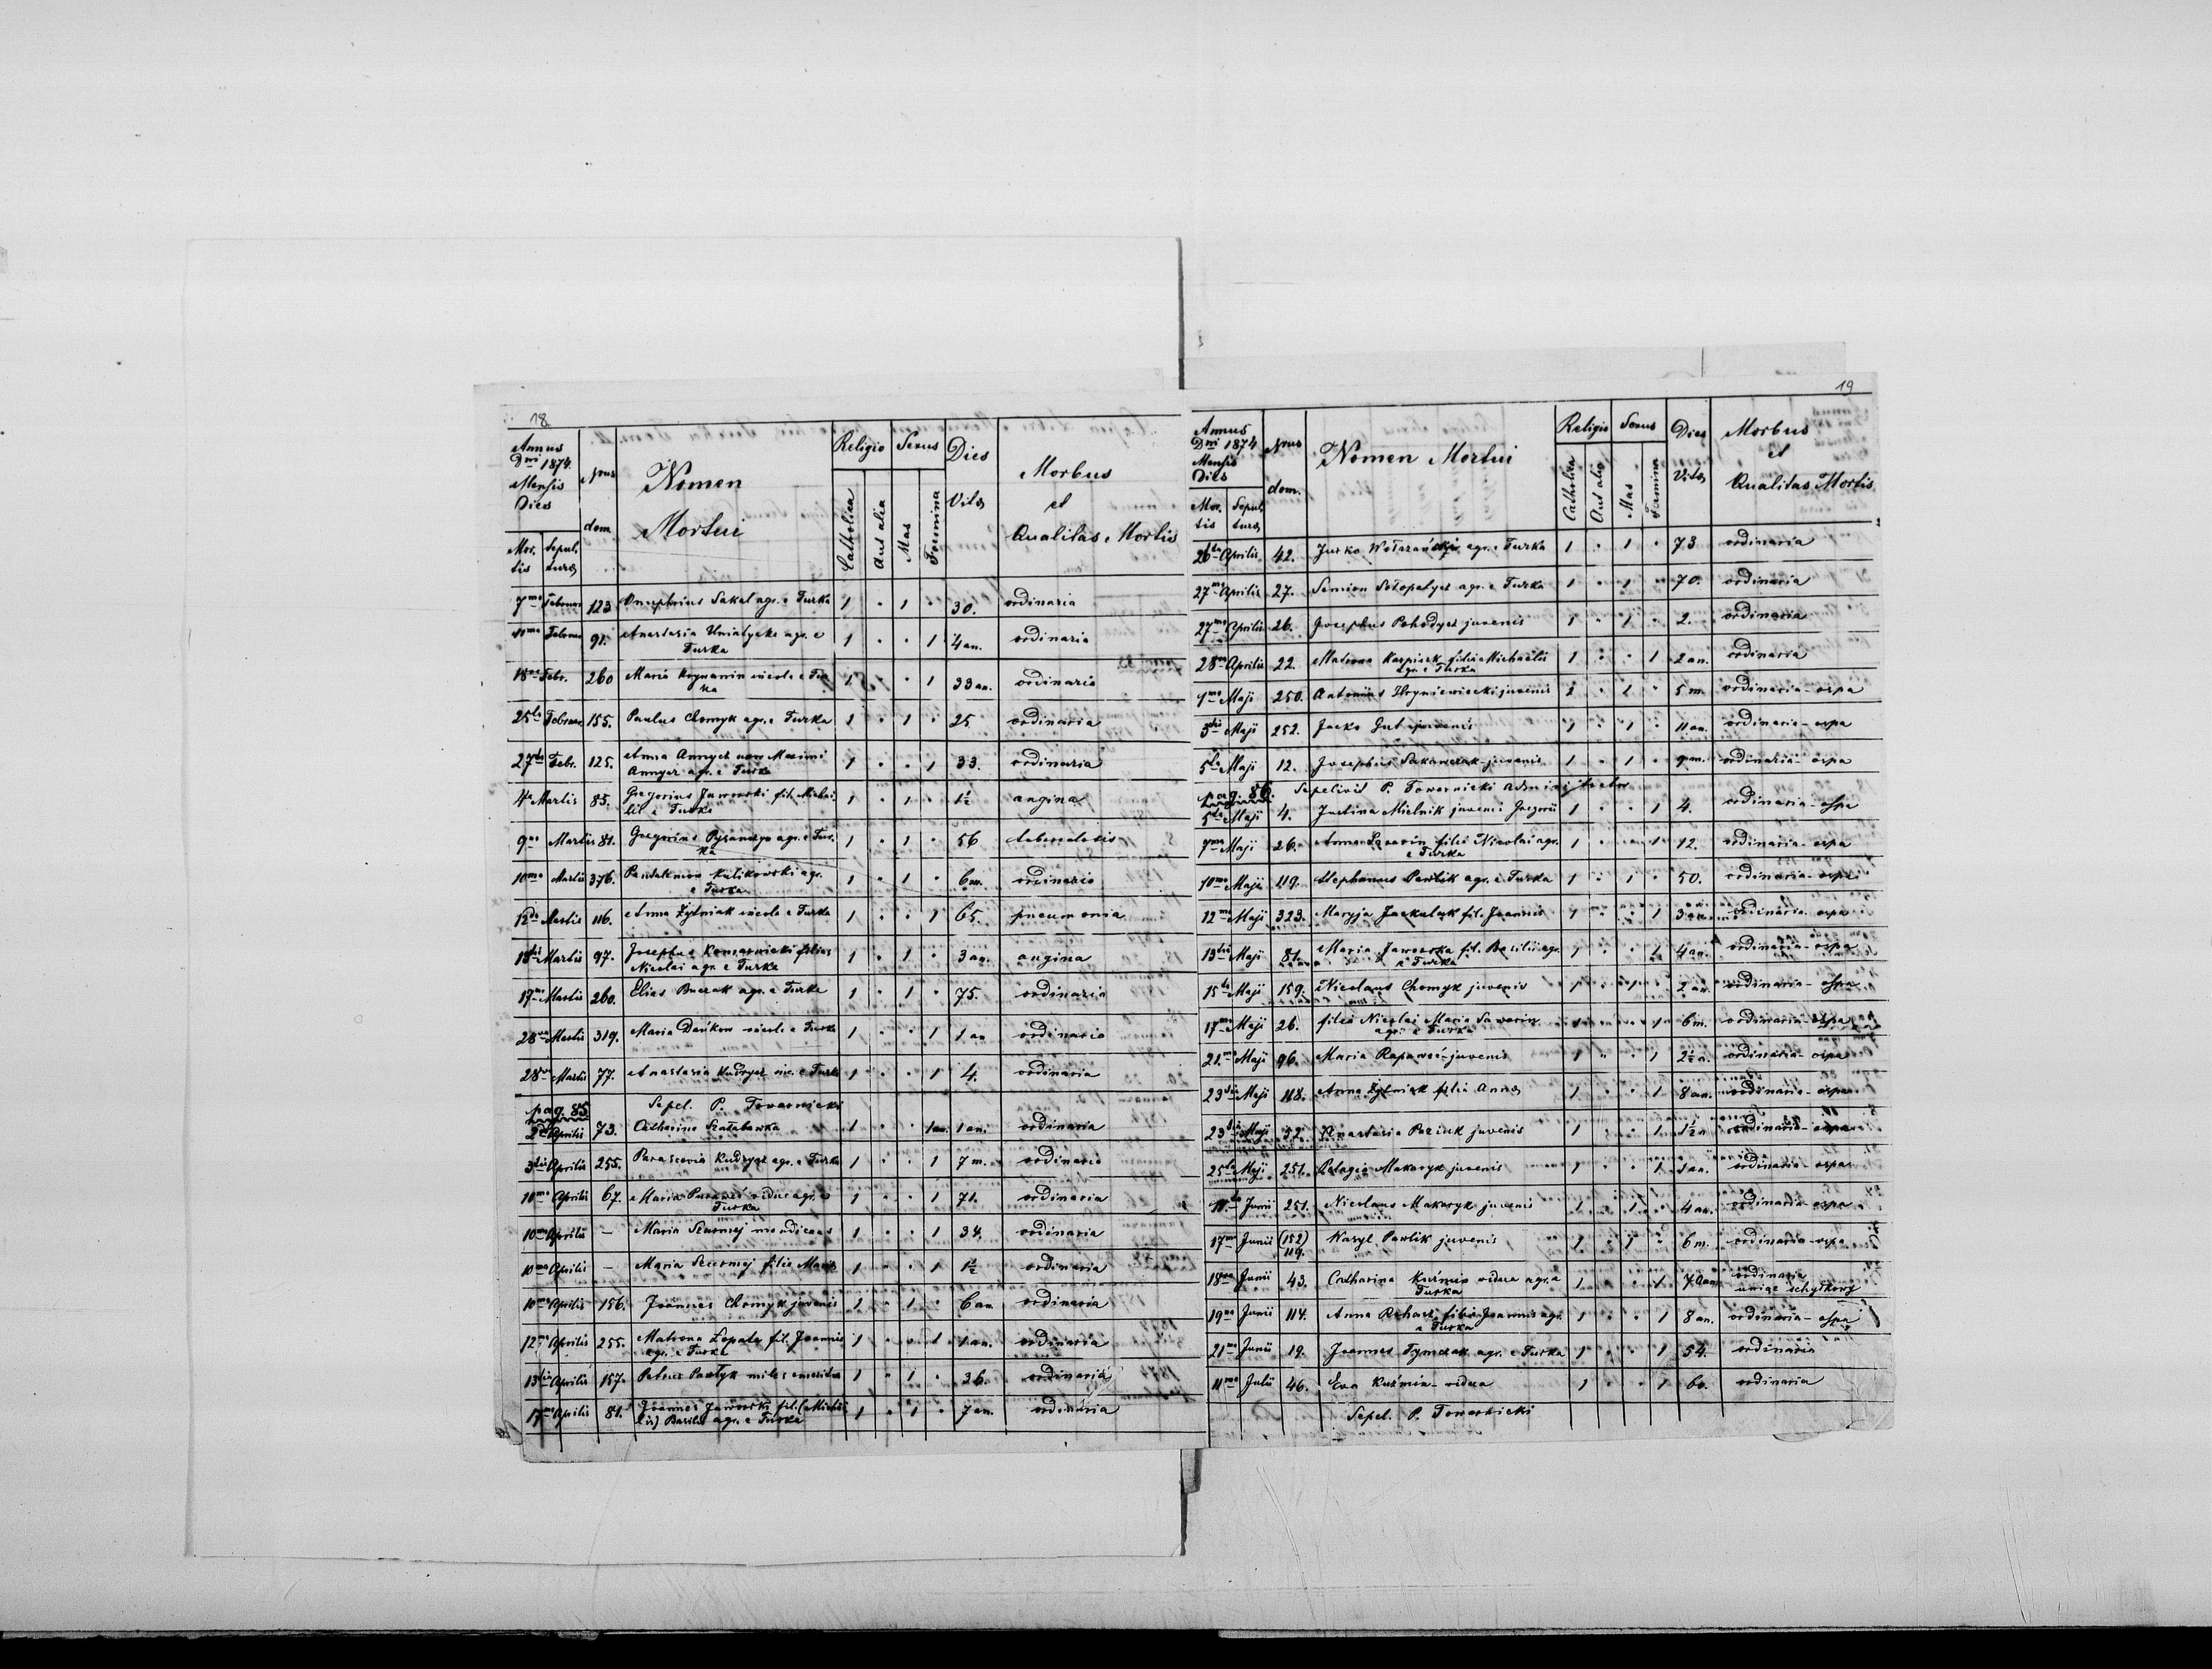 18.
Annus Dni 1874. Mensis Dies
Nrus dom.
Nomen Mortui
Religio
Sexus
Dies Vitæ
Morbus et Qualitas Mortis
Mortis
Sepulturæ
Catholica
Aut alia
Mas
Foemina
7ma Februar 123 Onuphrius Sakal agr. e Turka 1 " 1 " 30. ordinaria
Februar 91. Anastasia Uniatycka agr. e Turka 1 " " 1 4 an. ordinaria
18va Febr. 260 Maria incola e Turka 1 " " 1 33 an. ordinaria
25ta Februar 155. Paulus Chomyk agr. e Turka 1 " 1 " 25 ordinaria
27 Febr. 125. Anna Annycz uxor Maximi Annycz agr. e Turka 1 " " 1 33. ordinaria
4ta Martii 85. Gregorius Jaworski fil. e Turka 1 " 1 " 1½ angina
9na Martii 81. Gregorius agr. e Turka 1 " 1 " 56 tuberculosis
10ma Martii 376. Pantalemon Kulikowski agr. e Turka 1 " 1 " 6 m. ordinaria
12 Martii 116. Anna Żytniak incola e Turka 1 " " 1 65. pneumonia
13tia Martii 97. Josephus Komarnicki filius Nicolai agr. e Turka 1 " 1 " 3 an. angina
17ma Martii 260. Elias agr. e Turka 1 " 1 " 75. ordinaria
28va Martii 319. Maria Dańkow incola e Turka 1 " " 1 1 an ordinaria
28va Martii 77. Anastasia Kudrycz inc. e Turka 1 " " 1 4. ordinaria
pag. 85 Sepel. P. Towarnicki
2da Aprilis 73. Catharina Szatabawka 1 " " 1 an. 1 an. ordinaria
3tia Aprilis 255. Parascevia Kudrycz agr. e Turka 1 " " 1 7 m. ordinaria
10ma Aprilis 67. Maria vidua agr. e Turka 1 " " 1 71. ordinaria
10ma Aprilis – Maria Szurmej mendicans 1 " " 1 34. ordinaria
10ma Aprilis – Maria Szurmej filia Mariæ 1 " " 1 1½ ordinaria
10ma Aprilis 156. Joannes Chomyk juvenis 1 " 1 " 6 an ordinaria
12 Aprilis 255. Matrona Łopata fil. Joannis agr. e Turka 1 " " 1 1 an. ordinaria
13tia Aprilis 157. Petrus Pawlyk miles emeritus 1 " 1 " 36. ordinaria
17ma Aprilis 81. Joannes Jaworski fil. Basilii agr. e Turka 1 " 1 " 7 an. ordinaria
19
Annus Dni 1874 Mensis Dies
Nrus dom.
Nomen Mortui
Religio
Sexus
Dies Vitæ
Morbus et Qualitas Mortis
Mortis
Sepulturæ
Catholica
Aut alia
Mas
Foemina
26ta Aprilis 42. Jurko Wołszański agr. e Turka 1 " 1 " 73 ordinaria
27ma Aprilis 27. Semion Sołopatycz agr. e Turka 1 " 1 " 70. ordinaria
27ma Aprilis 26. Josephus Pohodycz juvenis 1 " 1 " 2. ordinaria
28va Aprilis 22. Matrona Karpiak filia Michaelis agr. e Turka 1 " " 1 2 an. ordinaria
1ma Maji 250. Antonius Hryniewiecki juvenis 1 " 1 " 5 m. ordinaria - ospa
3tia Maji 252. Jacko Gut juvenis 1 " 1 " 11 an. ordinaria - ospa
5ta Maji 12. Josephus juvenis 1 " 1 " 9 m. ordinaria - ospa
pag. 86. Sepelivit P. Towarnicki Administrator
5ta Maji 4. Justina Mielnik juvenis Gregorii 1 " " 1 4. ordinaria - ospa
7ma Maji 26. Anna filia Nicolai agr. e Turka 1 " " 1 12. ordinaria - ospa
10ma Maji 119. Stephanus Pawlik agr. e Turka 1 " 1 " 50. ordinaria - ospa
12ma Maji 323. Maryja fil. Joannis 1 " " 1 3 an. ordinaria - ospa
13tia Maji 81. Maria Jaworska fil. Basilii agr. e Turka 1 " " 1 4 an. ordinaria - ospa
15ta Maji 159. Nicolaus Chomyk juvenis 1 2 an ordinaria - ospa
17ma Maji 26. filia Nicolai Maria Saworin agr. e Turka 1 1 6 m. ordinaria - ospa
21ma Maji 96. Maria Rapaweć juvenis 1 " " 1 2½ a. ordinaria - ospa
23tia Maji 118. Anna Żytniak filia Annæ 1 " " 1 8 an. ordinaria - ospa
23tia Maji 52. Anastasia Paziuk juvenis 1 " " 1 1½ a ordinaria - ospa
25ta Maji 251. Pelagia Makaryk juvenis 1 " " 1 1 an. ordinaria - ospa
Junii 251. Nicolaus Makaryk juvenis 1 " 1 " 4 an. ordinaria - ospa
17ma Junii (152) 119. Wasyl Pawlik juvenis 1 " 1 " 6 m. ordinaria - ospa
18va Junii 43. Catharina Kuźmin vidua agr. e Turka 1 " " 1 ordinaria uwiąz schyłkowy
19na Junii 114. Anna filia Joannis agr. e Turka 1 " " 1 8 an. ordinaria - ospa
21ma Junii 19. Joannes Tymczak agr. e Turka 1 " " 1 54. ordinaria
11ma Julii 46. Eva Kuźmin - vidua 1 " " 1 60. ordinaria
Sepel. P. Towarnicki